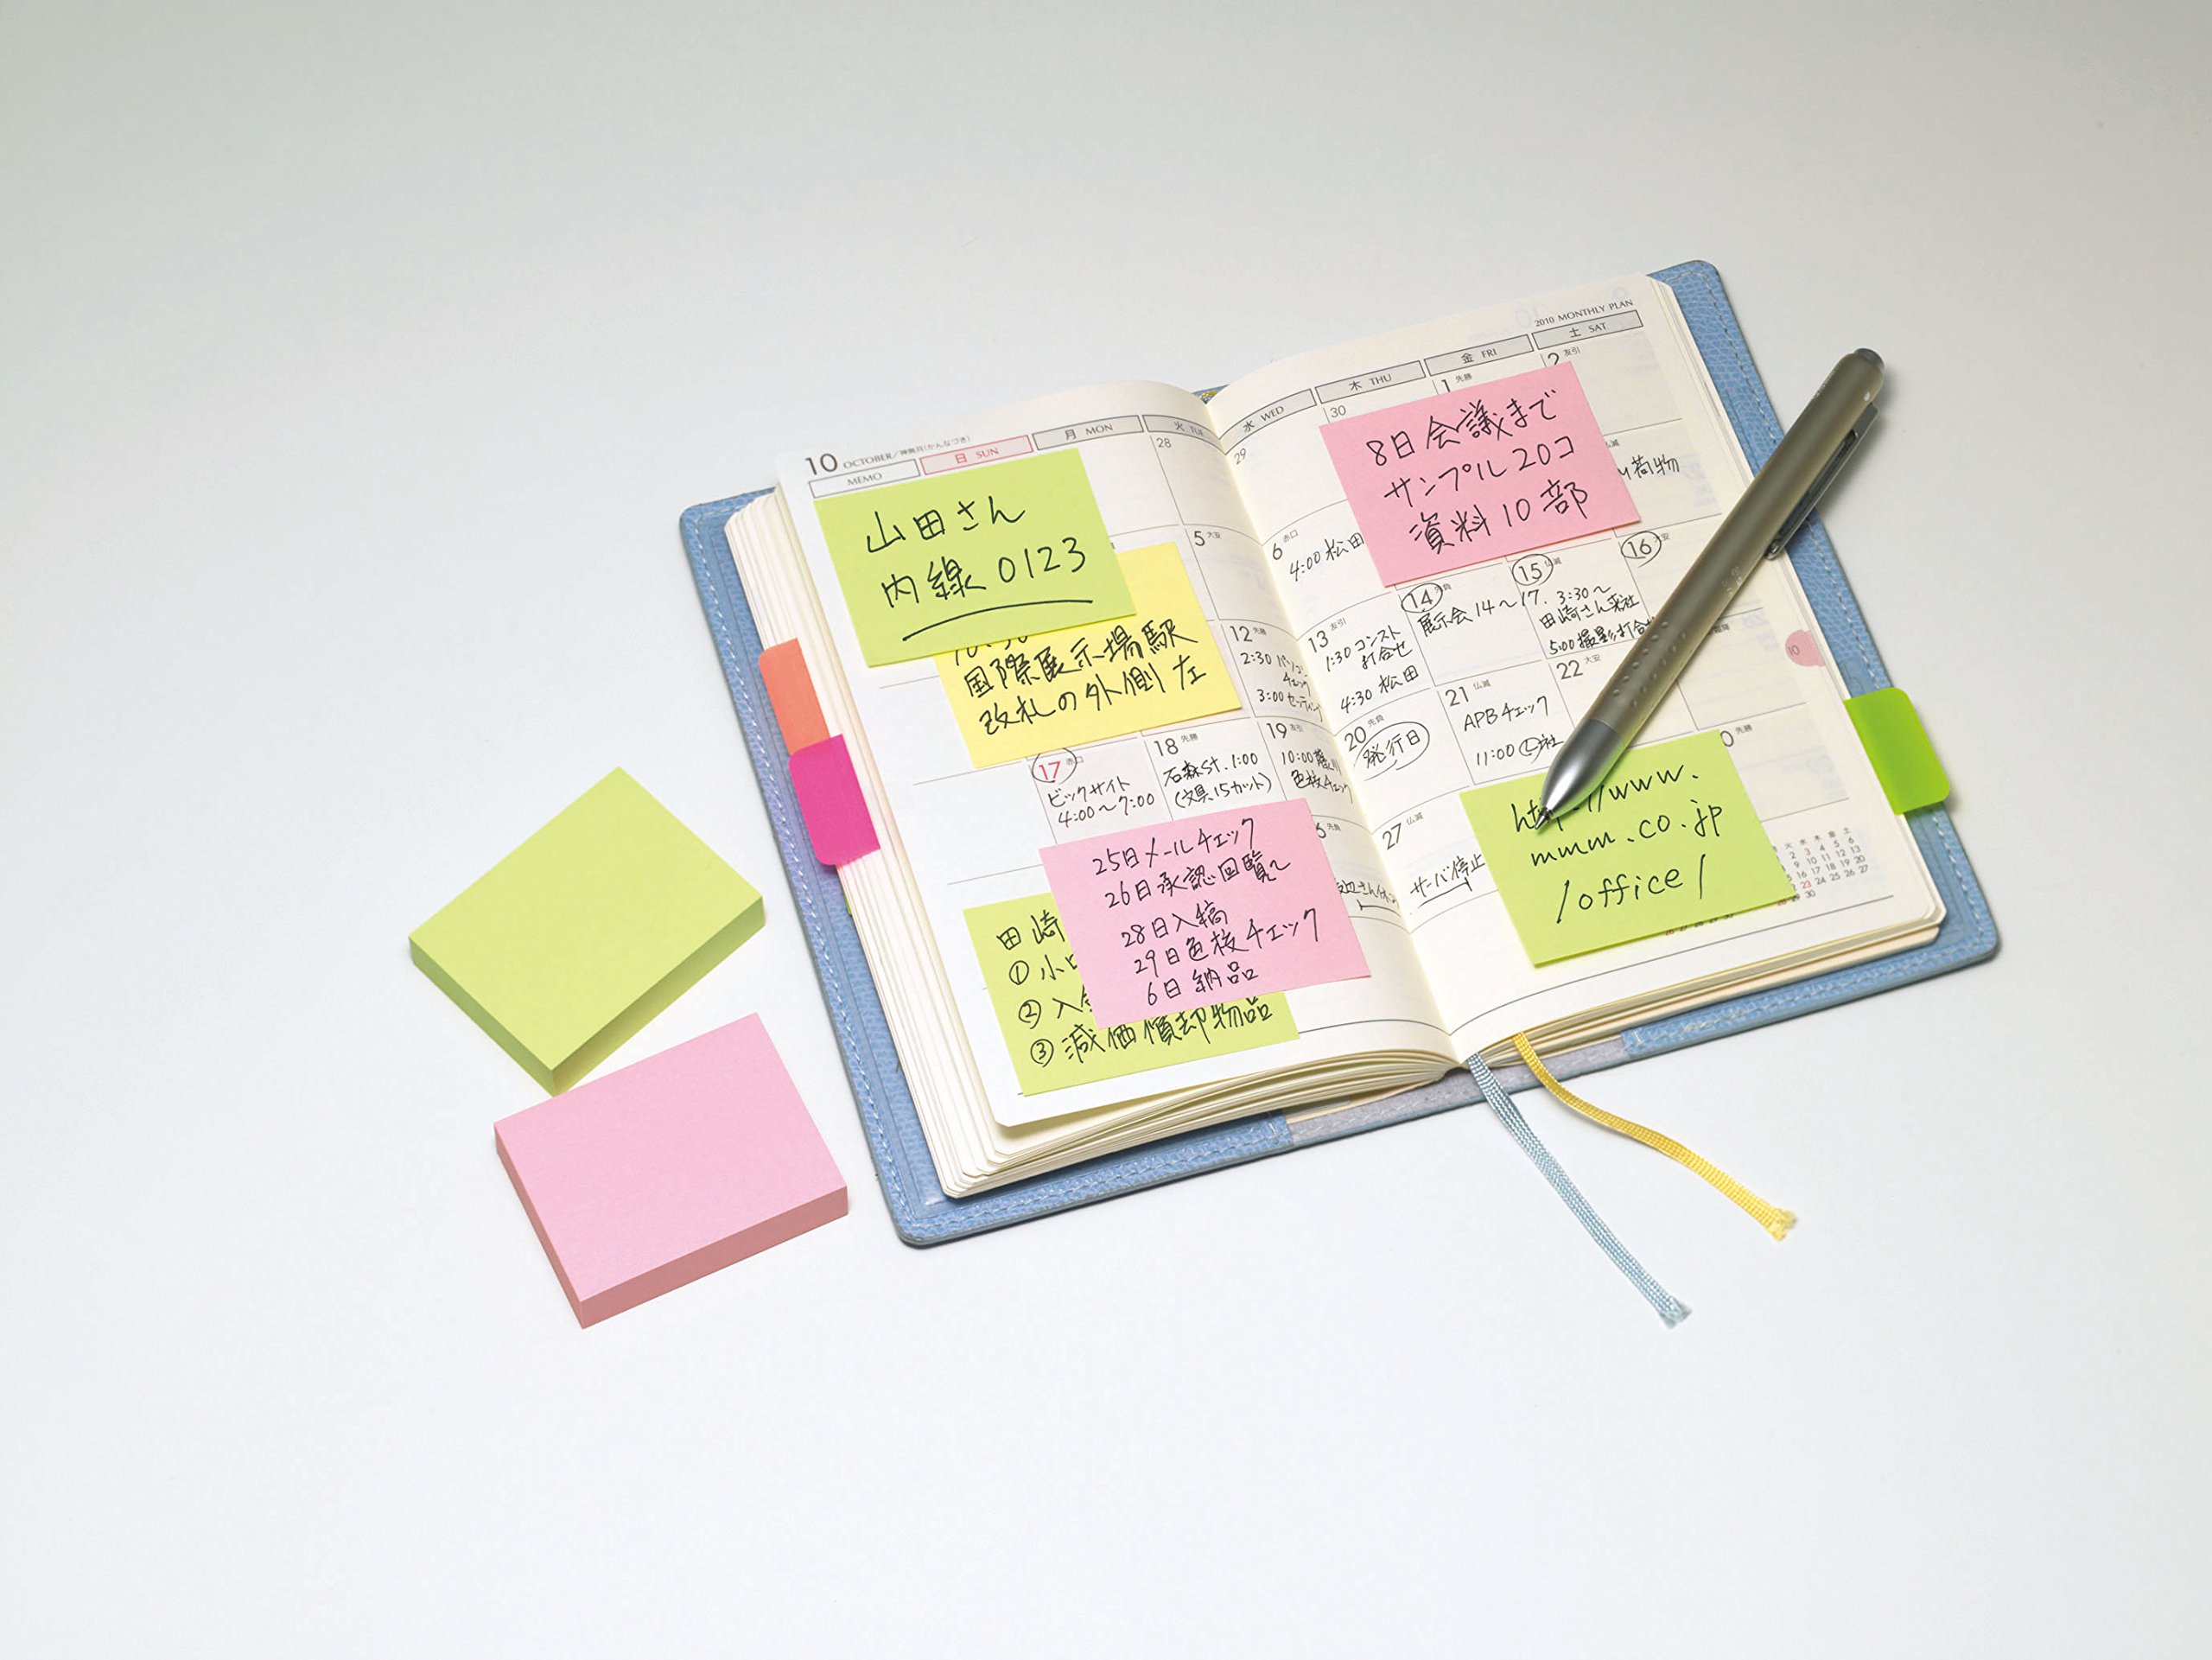 10 OCTOBER/神無月(かんなづき)
MEMO
日 SUN
月 MON
火 TUE
28
5 大安
山田さん
内線 0123
国際展示場駅
改札の外側 左
12 先勝
2:30
3:00 セッティング
17 赤口
ビックサイト
4:00〜7:00
18 先勝
石森st. 1:00
(文具15カット)
19 友引
10:00
色校チェック
25日メールチェック
26日承認回覧〆
28日入稿
29日色校チェック
6日 納品
田崎
① 小
② 入
③ 減価償却物品
2010 MONTHLY PLAN
水 WED
木 THU
金 FRI
土 SAT
29
30
1 先勝
2 友引
8日会議まで
サンプル20コ
資料10部
荷物
6 赤口
4:00 松田
13 友引
1:30 コンスト
打合せ
4:30 松田
14
展示会14〜17.
15
3:30〜
田崎さん来社
5:00 撮影打合せ
16
20 先負
発行日
21 仏滅
APBチェック
11:00
22 大安
27 仏滅
サーバ停止
www.
mmm.co.jp
/office/
10